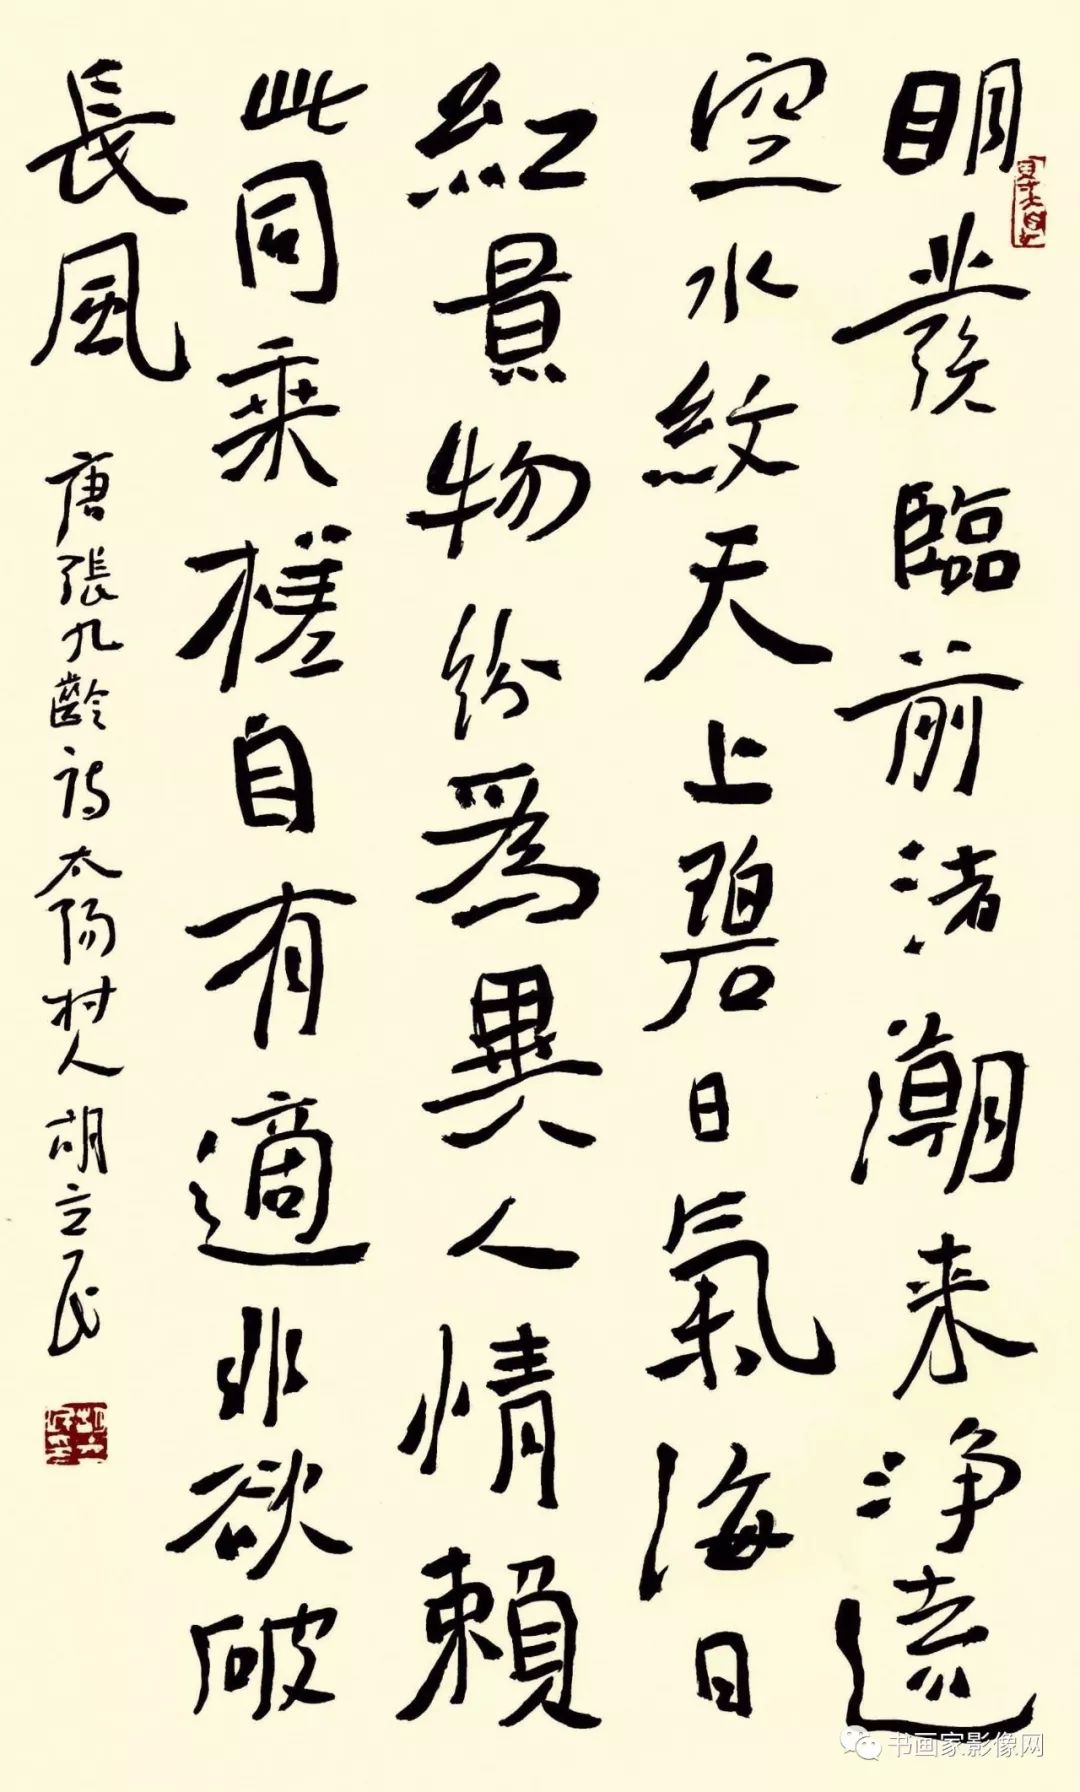 明發臨前渚潮来净遠
空水紋天上碧日氣海日
紅景物紛爲異人情賴
此同乘槎自有適非欲破
長風
唐張九齡詩太陽村人胡立民
书画家影像网